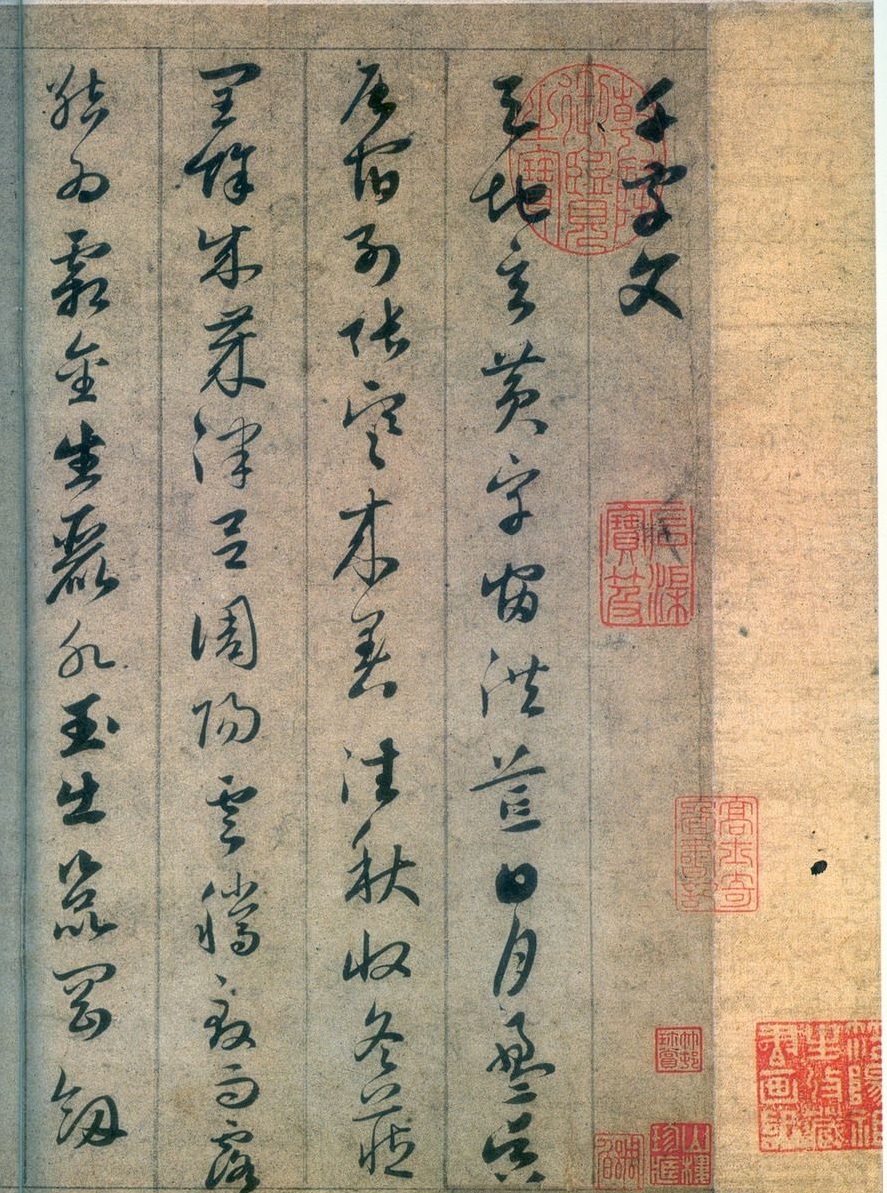 千字文
天地玄黃宇宙洪荒日月盈昃
辰宿列張寒來暑往秋收冬藏
閏餘成歲律呂調陽雲騰致雨露
結為霜金生麗水玉出崑岡劍
乾隆御覽之寶
寶笈